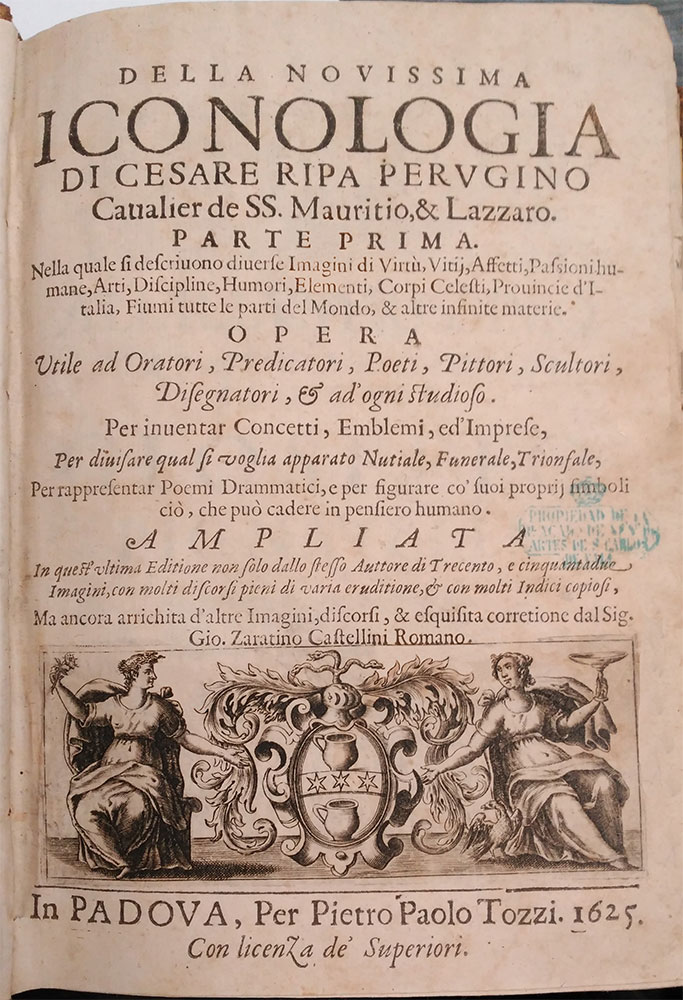 DELLA NOVISSIMA
ICONOLOGIA
DI CESARE RIPA PERVGINO
Caualier de SS. Mauritio, & Lazzaro.
PARTE PRIMA.
Nella quale ſi deſcriuono diuerſe Imagini di Virtù, Vitij, Affetti, Paſſioni hu-
mane, Arti, Diſcipline, Humori, Elementi, Corpi Celeſti, Prouincie d'I-
talia, Fiumi tutte le parti del Mondo, & altre infinite materie.
OPERA
Vtile ad Oratori, Predicatori, Poeti, Pittori, Scultori,
Diſegnatori, & ad'ogni ſtudioſo.
Per inuentar Concetti, Emblemi, ed'Impreſe,
Per diuiſare qual ſi voglia apparato Nutiale, Funerale, Trionfale,
Per rappreſentar Poemi Drammatici, e per figurare co' ſuoi proprij ſimboli
ciò, che può cadere in penſiero humano.
AMPLIATA
In queſt'vltima Editione non ſolo dallo ſteſſo Auttore di Trecento, e cinquantadue
Imagini, con molti diſcorſi pieni di varia eruditione, & con molti Indici copioſi,
Ma ancora arrichita d'altre Imagini, diſcorſi, & eſquiſita corretione dal Sig.
Gio. Zaratino Caſtellini Romano.
PROPIEDAD DE LA
ARTES DE S. CARLOS
In PADOVA, Per Pietro Paolo Tozzi. 1625.
Con licenza de' Superiori.